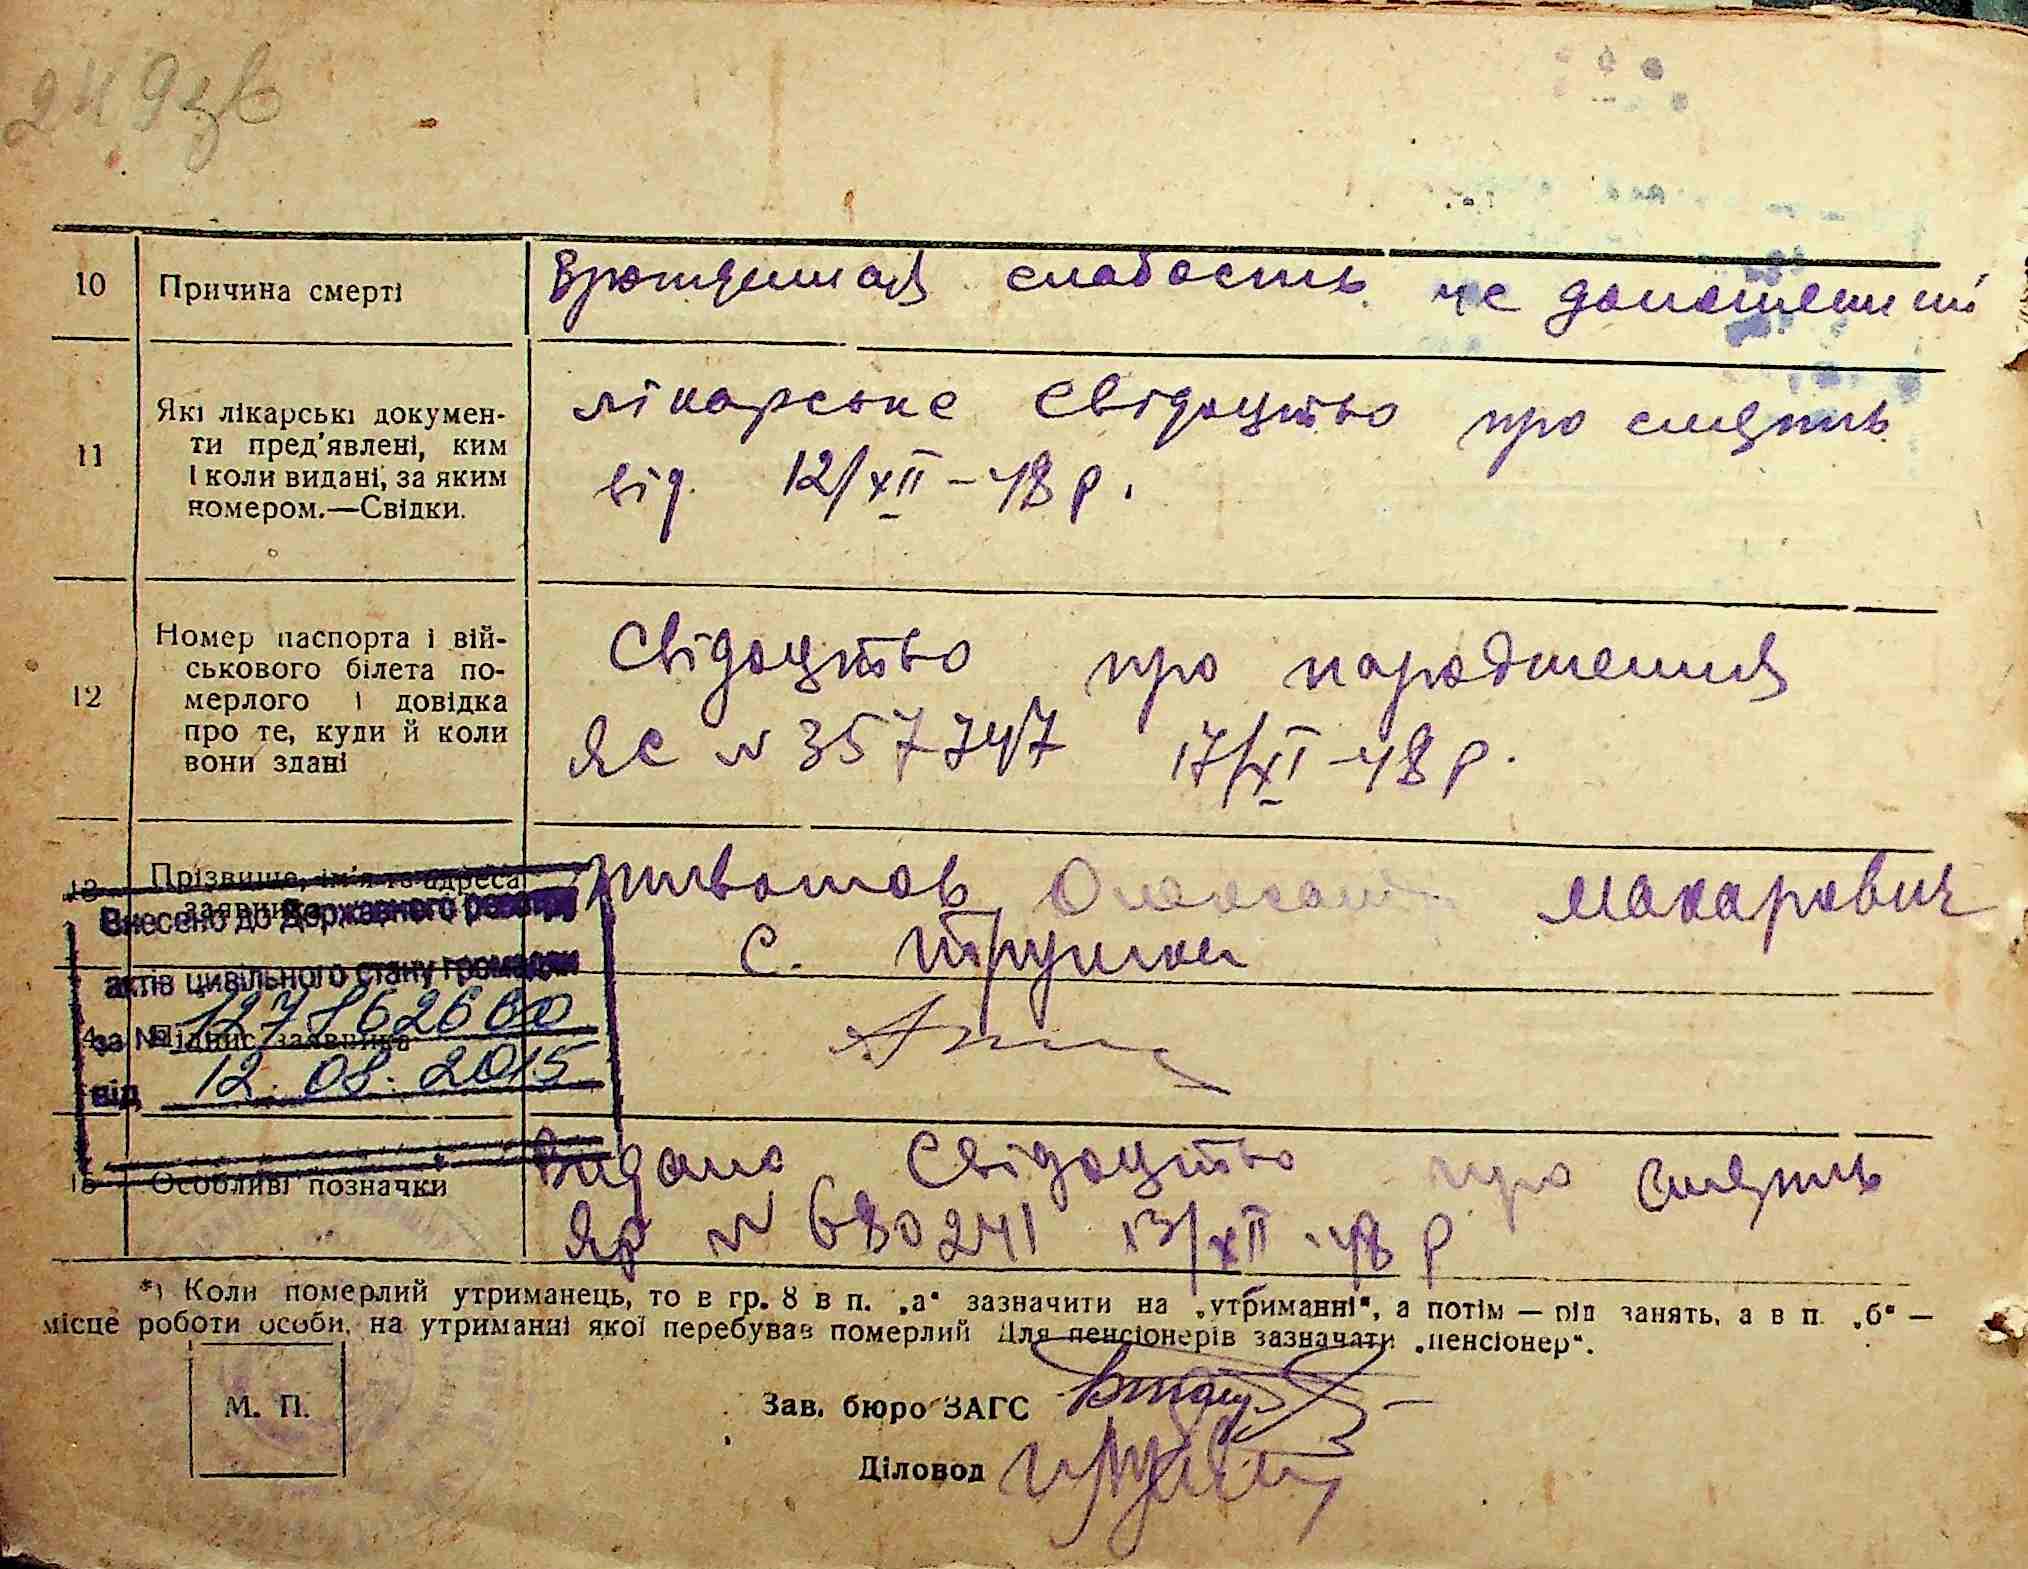 249зв
10 Причина смерті Врожденная слабость не доношений
11 Які лікарські докумен-
ти пред'явлені, ким
і коли видані, за яким
номером.—Свідки.
лікарське свідоцтво про смерть
від 12/XII-48 р.
12 Номер паспорта і вій-
ськового білета по-
мерлого і довідка
про те, куди й коли
вони здані
Свідоцтво про народження
ЯС № 357747 17/XI-48 р.
13 Прізвище, ім'я та адреса
заявника
Макарович
с.
Внесено до Державного реєстру
актів цивільного стану громадян
за № 
від 12.08.2015
Підпис заявника
15 Особливі позначки
Видано свідоцтво про смерть
ЯР № 680241 13/XII-48 р
*) Коли померлий утриманець, то в гр. 8 в п. „а“ зазначити на „утриманні“, а потім — рід занять, а в п. „б“ —
місце роботи особи, на утриманні якої перебував померлий Для пенсіонерів зазначати „пенсіонер“.
М. П.
Зав. бюро ЗАГС
Діловод